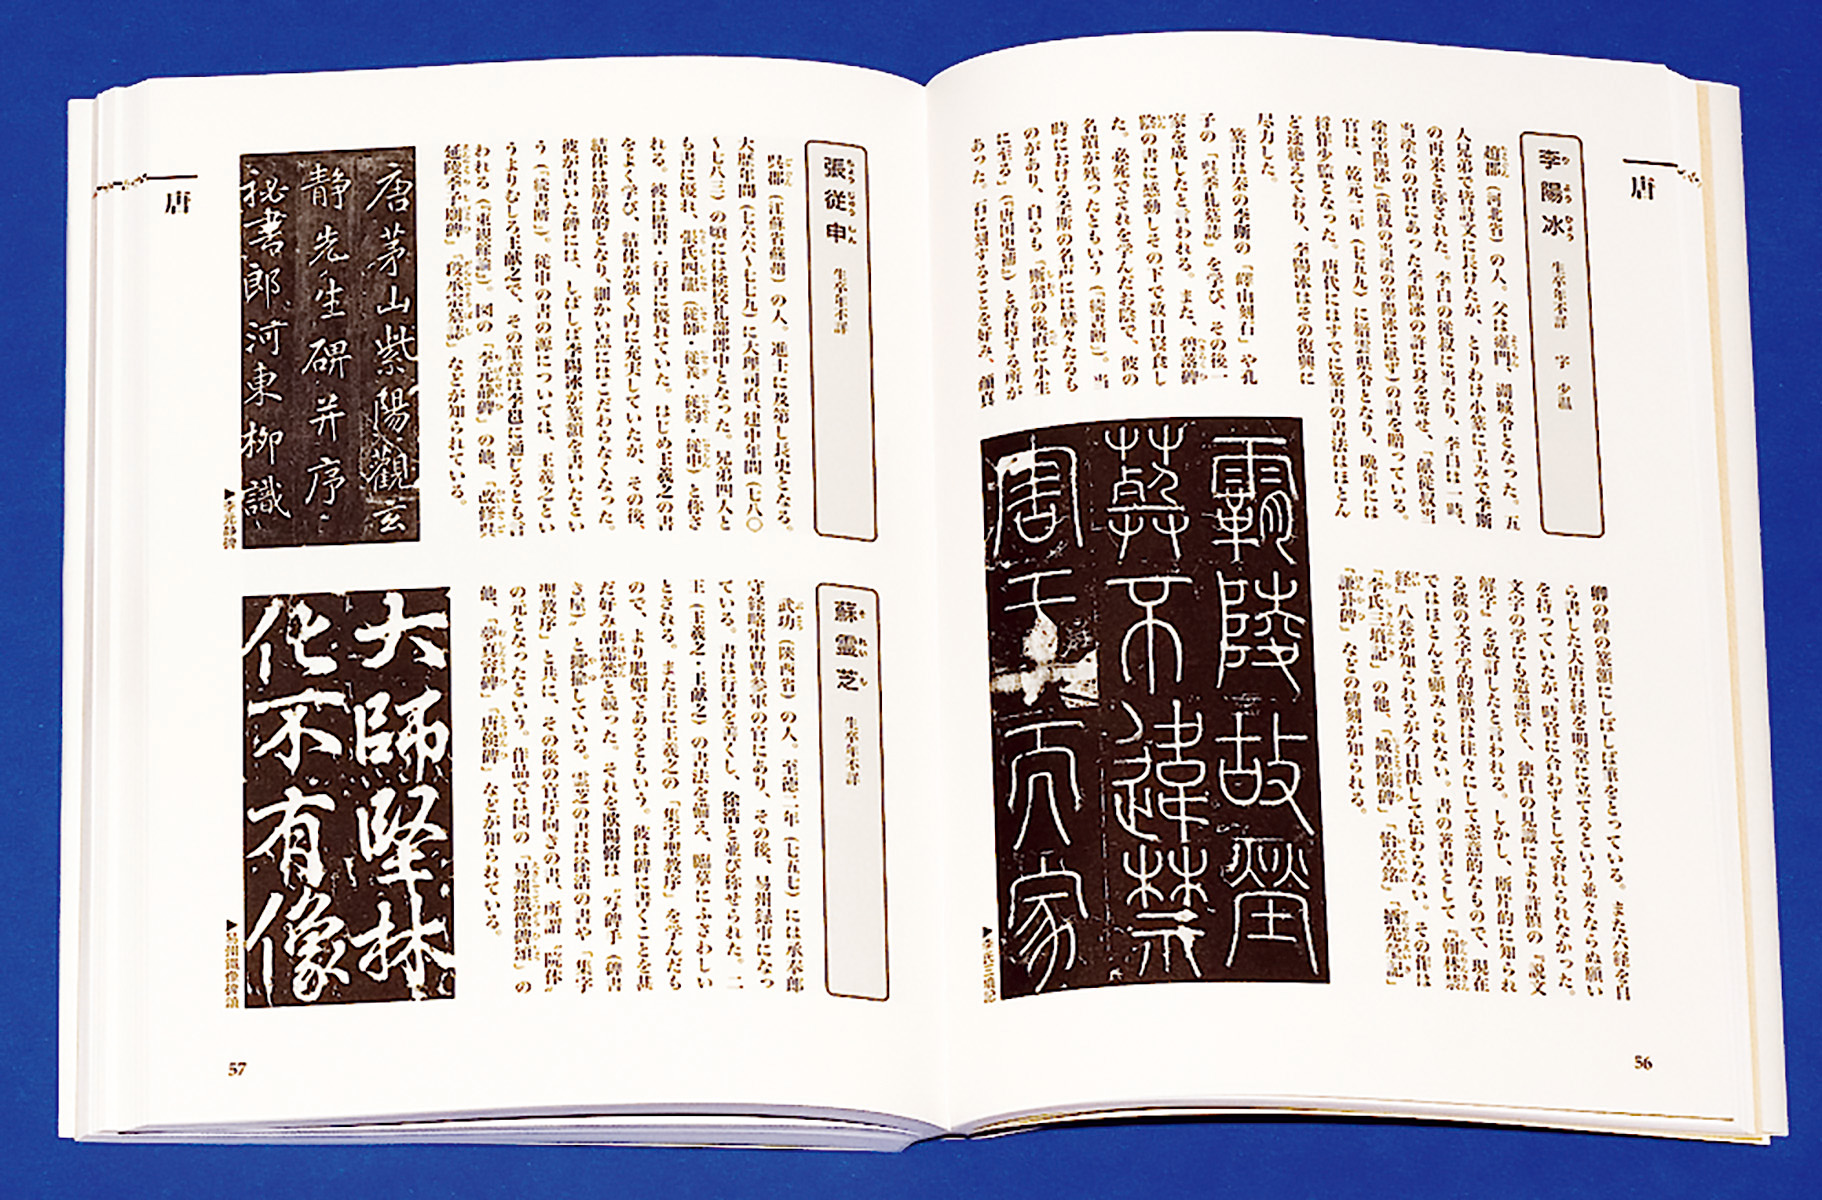 唐
李陽冰
り よう ひょう
生卒年不詳 字 少温
趙郡（河北省）の人。父は雍門、湖城令となった。五
人兄弟で皆詩文に長けたが、とりわけ小篆に巧みで李斯
の再来と称された。李白の従叔に当たり、李白は一時、
当塗令の官にあった李陽冰の許に身を寄せ、「献従叔当
塗宰陽冰」（従叔の当塗の宰陽冰に献ず）の詩を贈っている。
官は、乾元二年（七五九）に縉雲県令となり、晩年には
将作少監となった。唐代にはすでに篆書の書法はほとん
ど途絶えており、李陽冰はその復興に
尽力した。
篆書は秦の李斯の「嶧山刻石」や孔
子の「呉季札墓誌」を学び、その後一
家を成したと言われる。また、
の書に感動しその下で数日寝食し
た。必死でそれを学んだお陰で、彼の
名蹟が残ったともいう（『続書断』）。当
時における李斯の名声には赫々たるも
のがあり、自らも「斯翁の後直に小生
に至る」（『唐国史補』）と矜持する所が
あった。石に刻することを好み、顔真
卿の碑の篆額にしばしば筆をとっている。また六経を自
ら書した大唐石経を明堂に立てるという並々ならぬ願い
を持っていたが、時官に合わずとして容れられなかった。
文字の学にも造詣深く、独自の見識により許慎の『説文
解字』を改訂したと言われる。しかし、断片的に知られ
る彼の文字学的解釈は往々にして恣意的なもので、現在
ではほとんど顧みられない。書の著書として『翰林禁
経』八巻が知られるが今日佚して伝わらない。その作は
「李氏三墳記」の他、「城隍廟碑」「怡亭銘」「栖先塋記」
「謙卦碑」などの碑刻が知られる。
霸陵故塋
無不違禁
▶李氏三墳記
56
唐
張従申
ちょう じゅう しん
生卒年不詳
呉郡（江蘇省蘇州）の人。進士に及第し長史となる。
大歴年間（七六六～七七九）に大理司直、建中年間（七八〇
～七八三）の頃には検校礼部郎中となった。兄弟四人と
も書に優れ、張氏四龍（従師・従義・従約・従申）と称さ
れる。彼は楷書・行書に優れていた。はじめ王羲之の書
をよく学び、結体が強く内に充実していたが、その後、
結体は解放的となり、細かい点にはこだわらなくなった。
彼が書いた碑には、しばしば李陽冰が篆額を書いたとい
う（『続書断』）。従申の書の源については、王羲之とい
うよりむしろ王献之で、その筆意は李邕に通じるとも言
われる（『東観餘論』）。図の「李元静碑」の他、「改修呉
延陵季子廟碑」「段承宗墓誌」などが知られている。
唐茅山紫陽觀玄
静先生碑并序
祕書郎河東柳識
▶李元静碑
蘇霊芝
そ れい し
生卒年不詳
武功（陝西省）の人。至徳二年（七五七）には承奉郎
守経略軍冑曹参軍の官にあり、その後、易州録事になっ
ている。書は行書を善くし、徐浩と並び称せられた。二
王（王羲之・王献之）の書法を備え、臨摹にふさわしい
とされる。また主に王羲之の「集字聖教序」を学んだも
ので、より肥媚であるともいう。彼は碑に書くことを甚
だ好み胡霈然と競った。それを欧陽脩は「写碑手（碑書
き屋）」と揶揄している。霊芝の書は徐浩の書や「集字
聖教序」と共に、その後の官庁向きの書、所謂「院体」
の元となったという。作品では図の「易州鐵像碑頌」の
他、「夢真容碑」「唐懐碑」などが知られている。
大師堅林
化不有像
▶易州鐵像碑頌
57